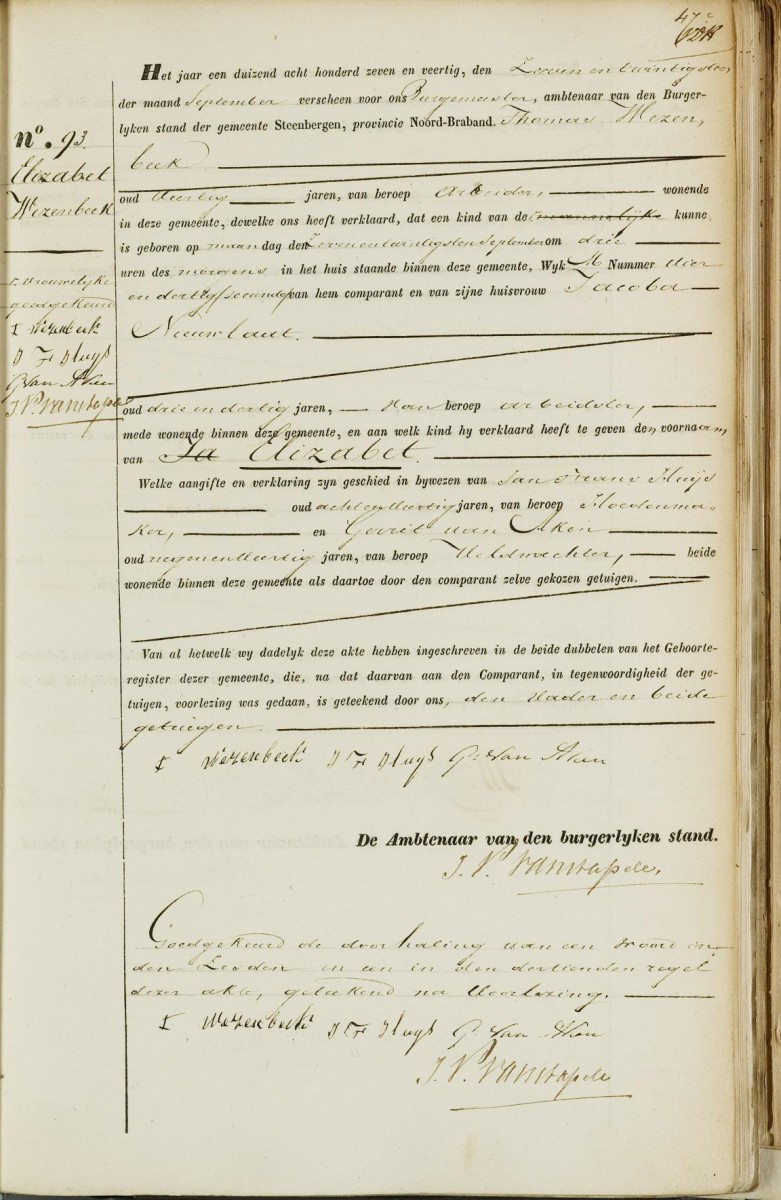 47
Het jaar een duizend acht honderd zeven en veertig, den Zeven en twintigsten
der maand September verscheen voor ons Burgemeester, ambtenaar van den Burger-
lyken stand der gemeente Steenbergen, provincie Noord-Braband. Thomas Wezen,
beek
oud Veertig jaren, van beroep Arbeider, wonende
in deze gemeente, dewelke ons heeft verklaard, dat een kind van de mannelijke kunne
is geboren op maandag den Zeven en twintigsten September om drie
uren des morgens in het huis staande binnen deze gemeente, Wyk M Nummer Vier
en dertig secundo van hem comparant en van zijne huisvrouw Jacoba
Nieuwlaut.
oud drie en dertig jaren, van beroep arbeidster,
mede wonende binnen deze gemeente, en aan welk kind hy verklaard heeft te geven den voornaam,
van Ja Elizabet.
Welke aangifte en verklaring zyn geschied in bywezen van Jan Frans Huijs
oud achtenveertig jaren, van beroep Hoedenma-
ker, en Gerrit van Aken
oud negenenveertig jaren, van beroep Veldwachter, beide
wonende binnen deze gemeente als daartoe door den comparant zelve gekozen getuigen.
Van al hetwelk wy dadelyk deze akte hebben ingeschreven in de beide dubbelen van het Geboorte-
register dezer gemeente, die, na dat daarvan aan den Comparant, in tegenwoordigheid der ge-
tuigen, voorlezing was gedaan, is geteekend door ons, den Vader en beide
getuigen.
T Wezenbeek J F Huys G. van Aken
De Ambtenaar van den burgerlyken stand.
Goedgekeurd de doorhaling van een woord in
den Zesden en een in den dertienden regel
dezer akte, geteekend na Voorlezing.
T Wezenbeek J F Huys G van Aken
nº. 93.
Elizabet
Wezenbeek
r. vrouwelyke
goedgekeurd
T Wezenbeek
J F Huys
G van Aken